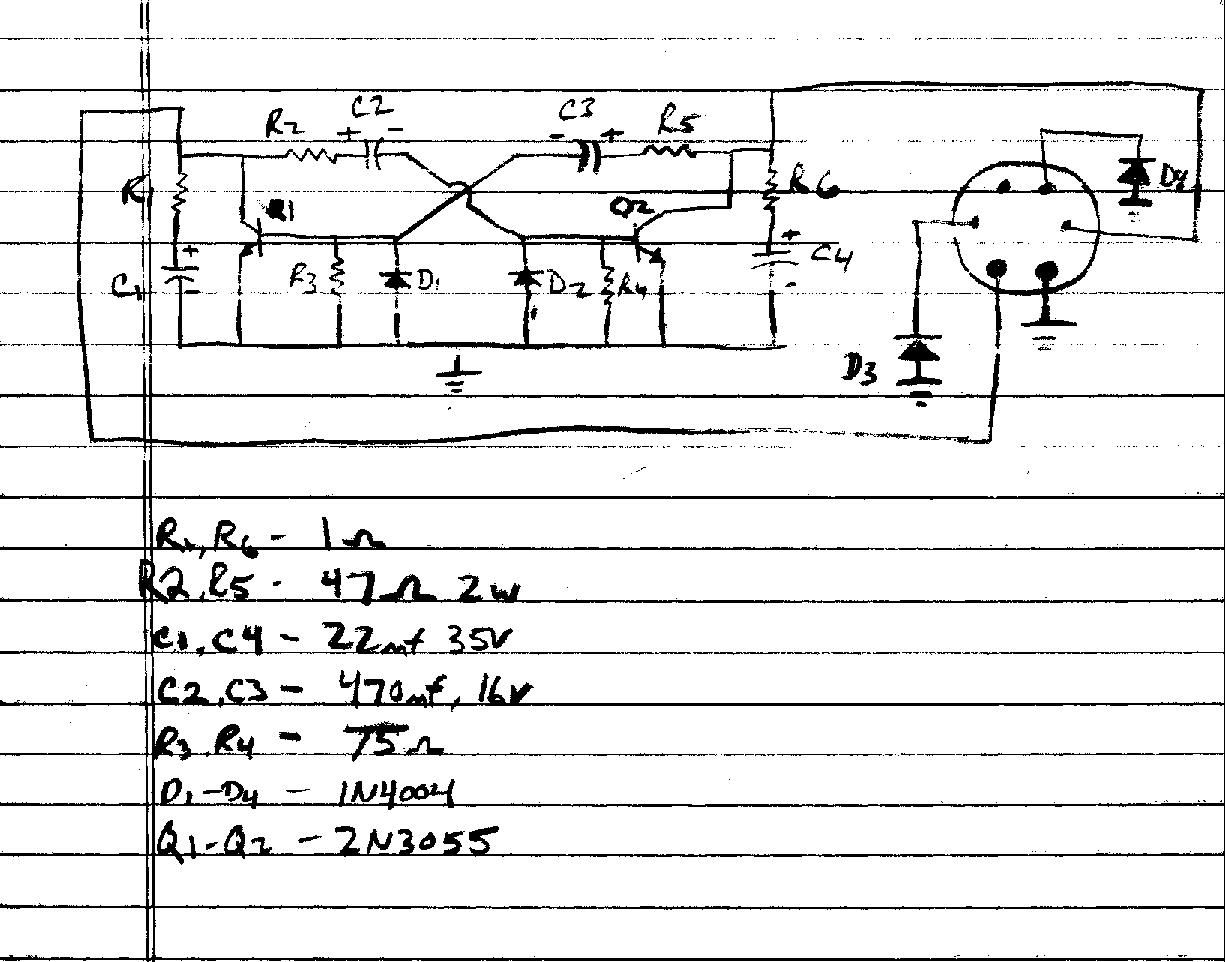 C2 C3
R2 + - - + R5
R1 Q1 Q2 R6 D4
+ +
C1 - R3 D1 D2 R4 C4
-
D3
R1, R6 - 1Ω
R2, R5 - 47Ω 2w
C1, C4 - 22mf 35V
C2, C3 - 470mf, 16V
R3, R4 - 75Ω
D1-D4 - 1N4004
Q1-Q2 - 2N3055